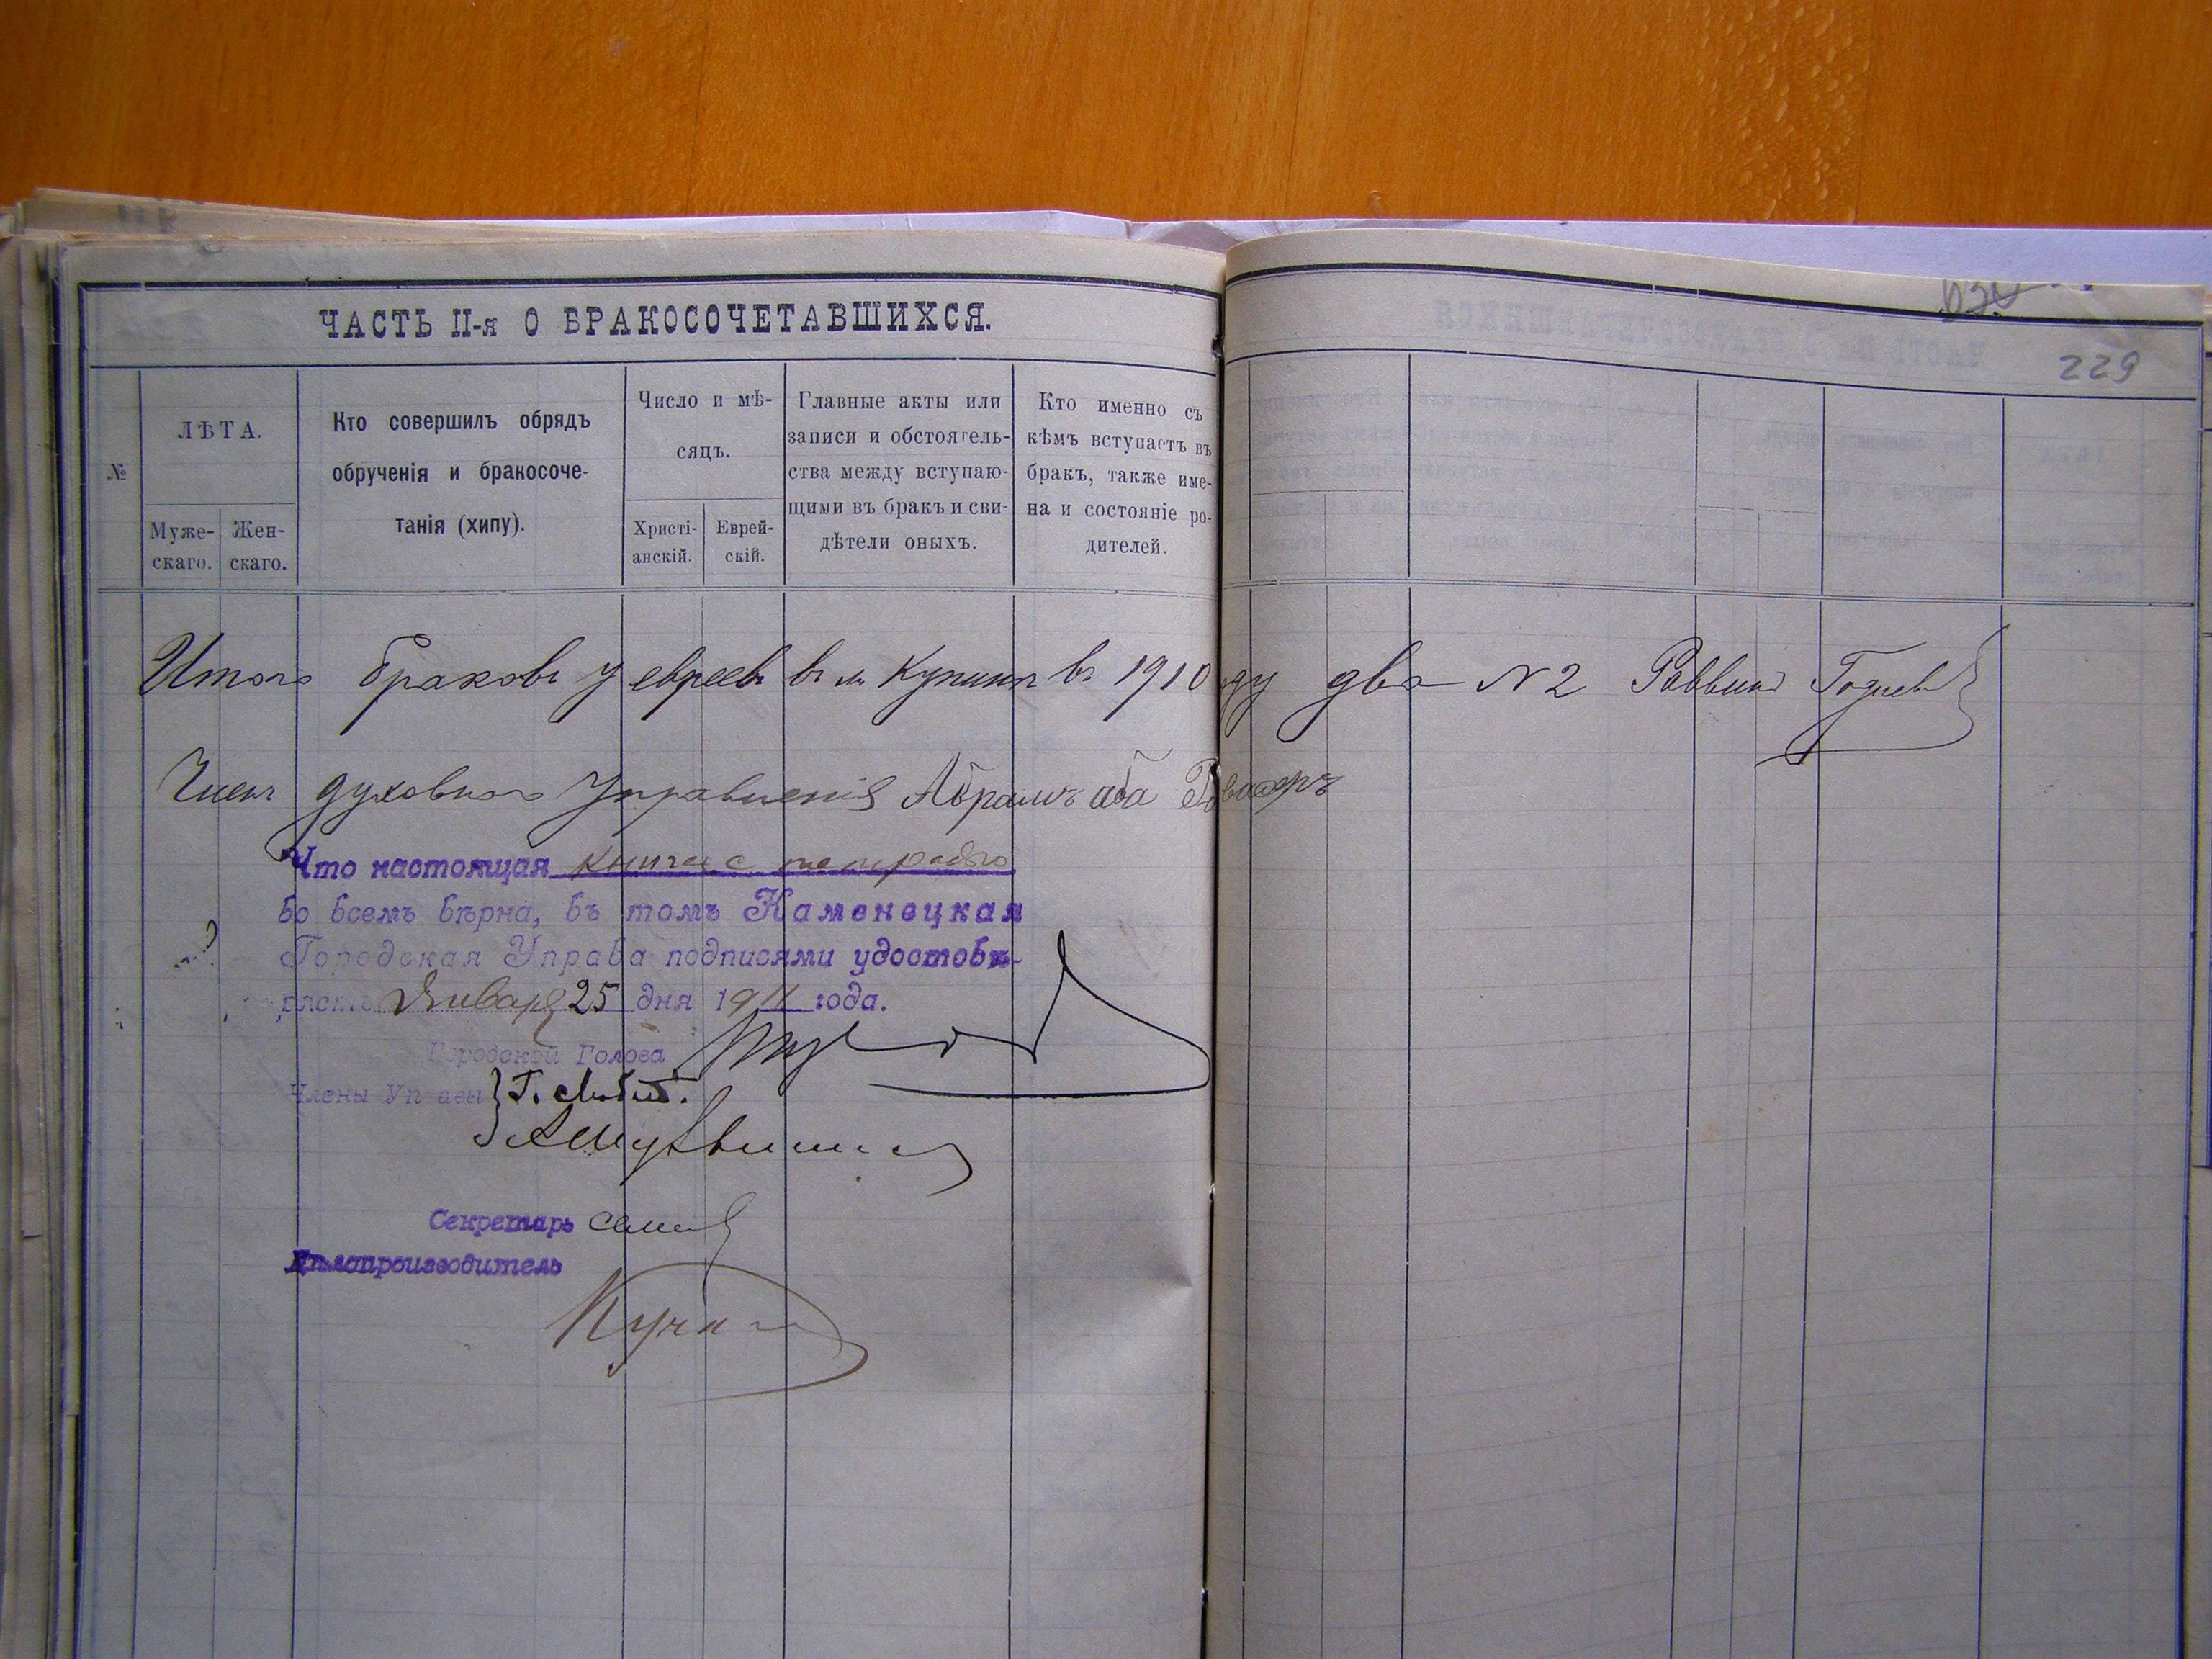 ЧАСТЬ II-я О БРАКОСОЧЕТАВШИХСЯ.
229
№
ЛѢТА.
Муже-
скаго.
Жен-
скаго.
Кто совершилъ обрядъ
обрученія и бракосоче-
танія (хипу).
Число и мѣ-
сяцъ.
Христі-
анскій.
Еврей-
скій.
Главные акты или
записи и обстоятель-
ства между вступаю-
щими въ бракъ и сви-
дѣтели оныхъ.
Кто именно съ
кѣмъ вступаетъ въ
бракъ, также име-
на и состояніе ро-
дителей.
Итого браковъ у евреевъ въ м. Купинѣ въ 1910 году два N 2 Раввинъ
Членъ духовного Управленія Абрамъ аба
Что настоящая книга с
во всемъ вѣрна, въ томъ Каменецкая
Городская Управа подписями удостовѣ-
ряетъ Января 25 дня 1911 года.
Городской Голова
Члены Управы
Секретарь
Дѣлопроизводитель